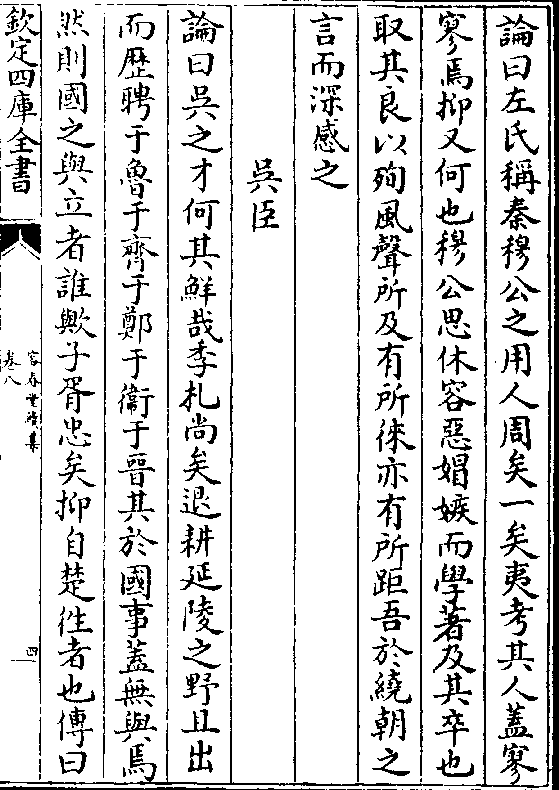 論曰左氏稱秦穆公之用人周矣一矣夷考其人蓋寥
寥焉抑又何也穆公思休容惡媢嫉而學著及其卒也
取其良以殉風聲所及有所徠亦有所距吾於繞朝之
言而深感之
吳臣
論曰吳之才何其鮮哉季札尚矣退耕延陵之野且出
而歴聘于魯于齊于鄭于衞于晉其於國事蓋無與焉
然則國之與立者誰歟子胥忠矣抑自楚徃者也傳曰
欽定四庫全書
容春堂續集
卷八
四